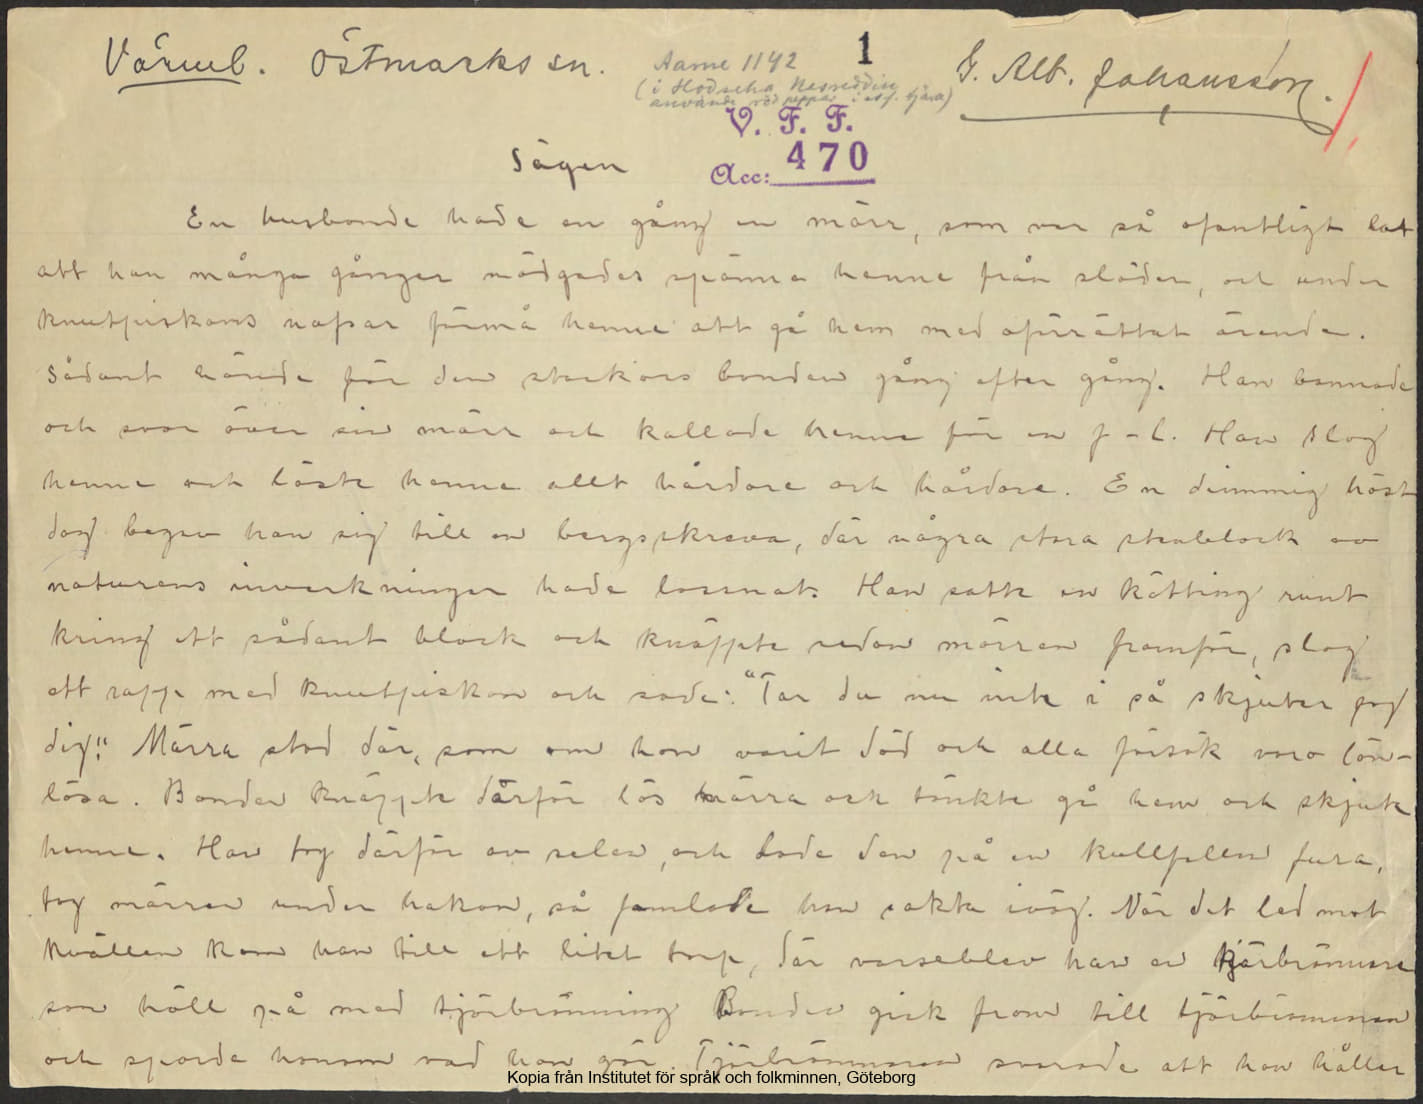 Värml. Östmarks sn.
Aarne 1142
1
G. Alb. Johansson.
(i Hodscha Nasreddin
använde röd peppar i st. f. tjära)
V. F. F.
Acc: 470
Sägen
En husbonde hade en gång en märr, som var så ofantligt lat
att han många gånger nödgades spänna henne från släden, och under
knutpiskans nafsar förmå henne att gå hem med oförrättat ärende.
Sådant hände för den stackars bonden gång efter gång. Han bannade
och svor över sin märr och kallade henne för en f-l. Han slog
henne och läste henne allt hårdare och hårdare. En dimmig höst
dag begav han sig till en bergsskreva, där några stora stenblock av
naturens inverkningar hade lossnat. Han satte en kätting runt
kring ett sådant block och knäppte sedan märren framför, slog
ett rapp med knutpiskan och sade: "Tar du nu inte i så skjuter jag
dig!" Märra stod där, som om hon varit död och alla försök voro lön-
lösa. Bonden knäppte därför lös märra och tänkte gå hem och skjuta
henne. Han tog därför av selen, och lade den på en kullfallen fura,
tog märren under hakan, så famlade han sakta iväg. När det led mot
kvällen kom han till ett litet torp, där varseblev han en tjärbrännare
som höll på med tjärbränning. Bonden gick fram till tjärbrännaren
och sporde honom vad han gör. Tjärbrännaren svarade att han håller
Kopia från Institutet för språk och folkminnen, Göteborg